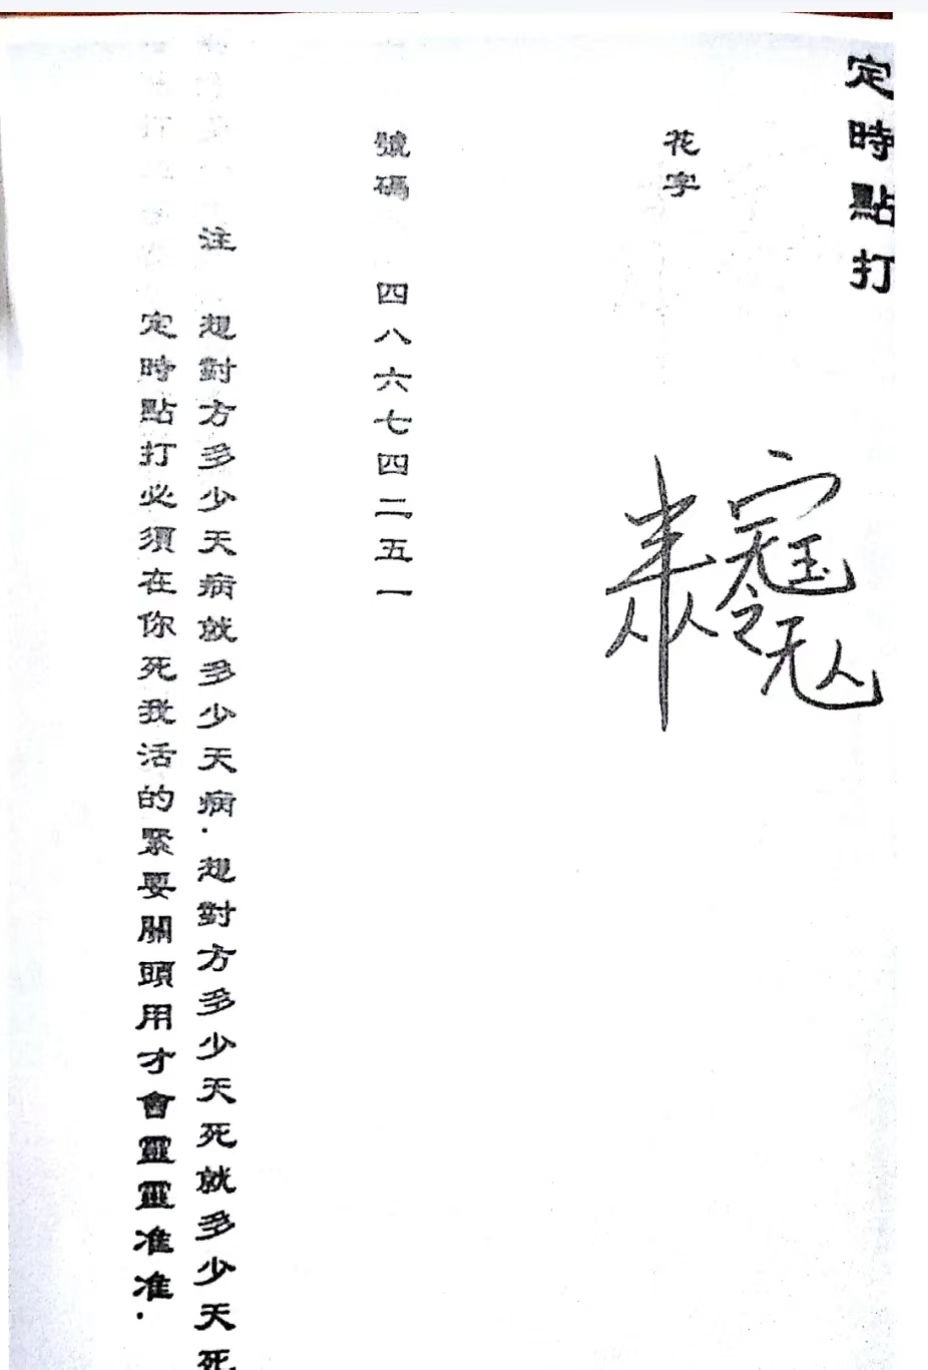 定時點打
花字
號碼 四八六七四二五一
注 想對方多少天病就多少天病．想對方多少天死就多少天死
定時點打必須在你死我活的緊要關頭用才會靈靈准准．